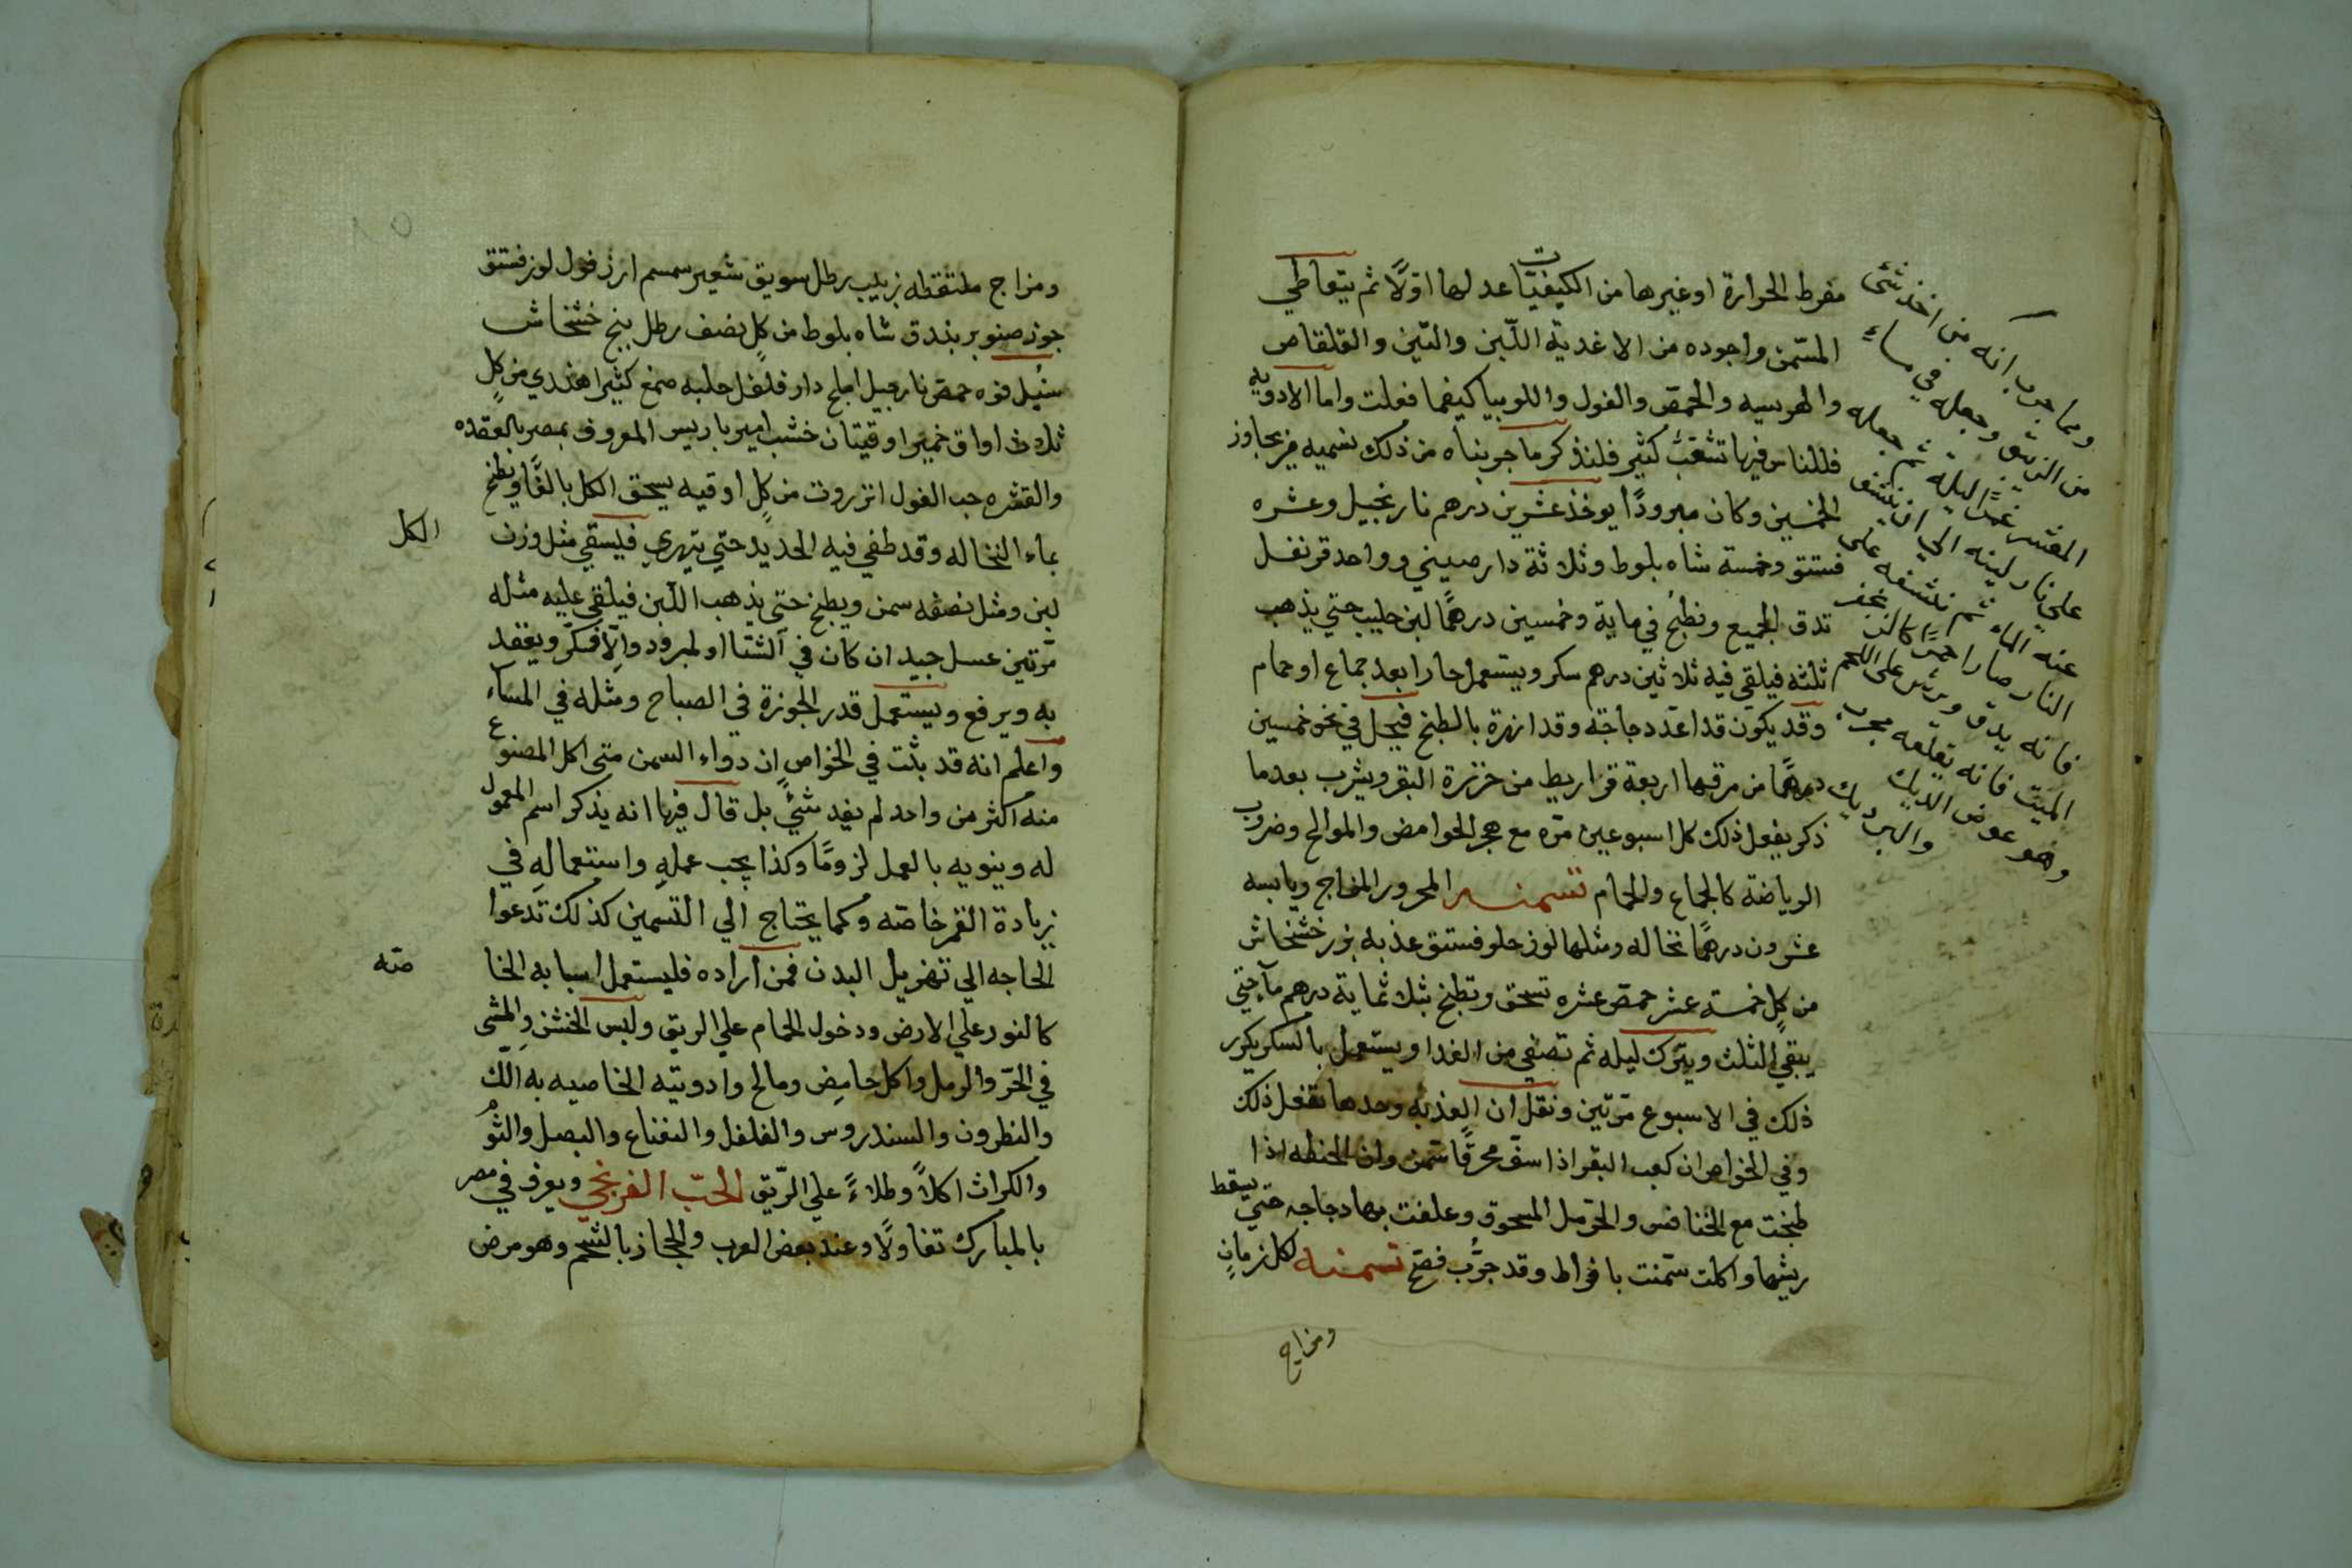 مفرط الحرارة او غيرها من الكيفيات عدلها اوّلاً ثم يتعاطي
المسّمن واجوده من الاغدية اللّبن والتّين والقلقاص
والهرسيه والحمص والفول واللوبيا كيفما فعلت واما الادويه
فللناس فيها تشعّب كثير فلنذكر ما جربناه من ذلك تسميه فيزيجاوز
الخمسين وكان مبرودًا يوخذ عشرين درهم نارنجيل وعشره
فستق وخمسة شاه بلوط وثلاثة دارصيني وواحد قرنفل
تدق الجميع وتطبخ في ماية وخمسين درهمًا لبن حليب حتي يذهب
ثلثه فيلقي فيه ثلاثين درهم سكر ويستعمل حارا بعد جماع او حمام
وقد يكون قد اعدّ دجاجة وقد انهرة بالطبخ فيجل في نحو خمسين
درهمًا من مرقها اربعة قراريط من خرزة البقر ويشرب بعدما
ذكر يفعل ذلك كل اسبوعين مرّه مع هجر الحوامض والموالح وضروب
الرياضة كالجماع والحمام تسمنه المحرور المزاج ويابسه
عشرون درهمًا نخاله ومثلها لوز حلو فستق عذبه بزر خشخاش
من كلٍ خمسة عشر حمص عشره تسحق وتطبخ بثلثماية درهم مآ حتي
يبقي الثلث ويترك ليله ثم تصفي من الغدا ويستعمل بالسكر يكرر
ذلك في الاسبوع مرّتين ونقل ان العذبه وحدها تفعل ذلك
وفي الخواص ان كعب البقر اذا سفّ محرقًا سّمن وان الحنطه اذا
طبخت مع الخنافس والحرّمل المسحوق وعلفت بها دجاجه حتي يسقط
ريشها واكلت سّمنت بافراط وقد جرّب فصّح تسمنه لكل زمانٍ
ومزاج
ومما جرب انه من اخذ شئ
من الزيبق وجعله في مساء
المقشر غدًا ليلة ثم جعله
علي نار لينه الي ان ينشف
عنه الماء ثم نشفه علي
النار صارا حمرًا كالز
فانه يدق ويرش علي اللحم
الميت فانه يقلعه مجرب
وهو عوض الديك
والبرديك
ومزاج ملتقطه زبيب رطل سويق شعير سمسم ارز فول لوز فستق
جوز صنوبر بندق شاه بلوط من كلٍ نصف رطل بنج خشخاش
سنبل فوه حمص نارجيل املج دار فلفل حلبه صمغ كثيرا هندي من كلٍ
ثلاث اواق خميرا وقيتان خشب اميرباريس المعروف بمصر بالعقده
والقشره حب الفول انزروت من كلٍ اوقيه يسحق الكل بالغًا ويطبخ
بماء النخاله وقد طفي فيه الحديد حتي يتهري فيسقي مثل وزن الكل
لبن ومثل نصفه سمن ويطبخ حتي يذهب اللّبن فيلقي عليه مثله
مرّتين عسل جيد ان كان في الشتا او لمبرود والّا فسكّر ويعقد
به ويرفع ويستعمل قدر الجوزة في الصباح ومثله في المسآء
واعلم انه قد بثت في الخواص ان دواء السمن متي اكل المصنوع
منه اكثر من واحد لم يفد شئٍ بل قال فيها انه يذكر اسم المعمول
له وينويه بالعمل لزومًا وكذا يجب عملهِ واستعمالهِ في
زيادة القمر خاصّه وكما يحتاج الي التسمين كذلك تدعوا
الحاجه الي تهزيل البدن فمن اراده فليستعمل اسبابه الخاصّه
كالنور علي الارض ودخول الحمام علي الريق ولبس الخشن والمشي
في الحرّ والرمل واكل حامِض ومالح وادويته الخاصيه به اللّك
والنطرون والسندروس والفلفل والنعناع والبصل والثُوُ
والكراث اكلاً وطلاءً علي الرّيق الحبّ الفرنجي ويعرف في مصر
بالمبارك تفاولًا وعند بعض العرب والحجاز بالشجم وهو مرض